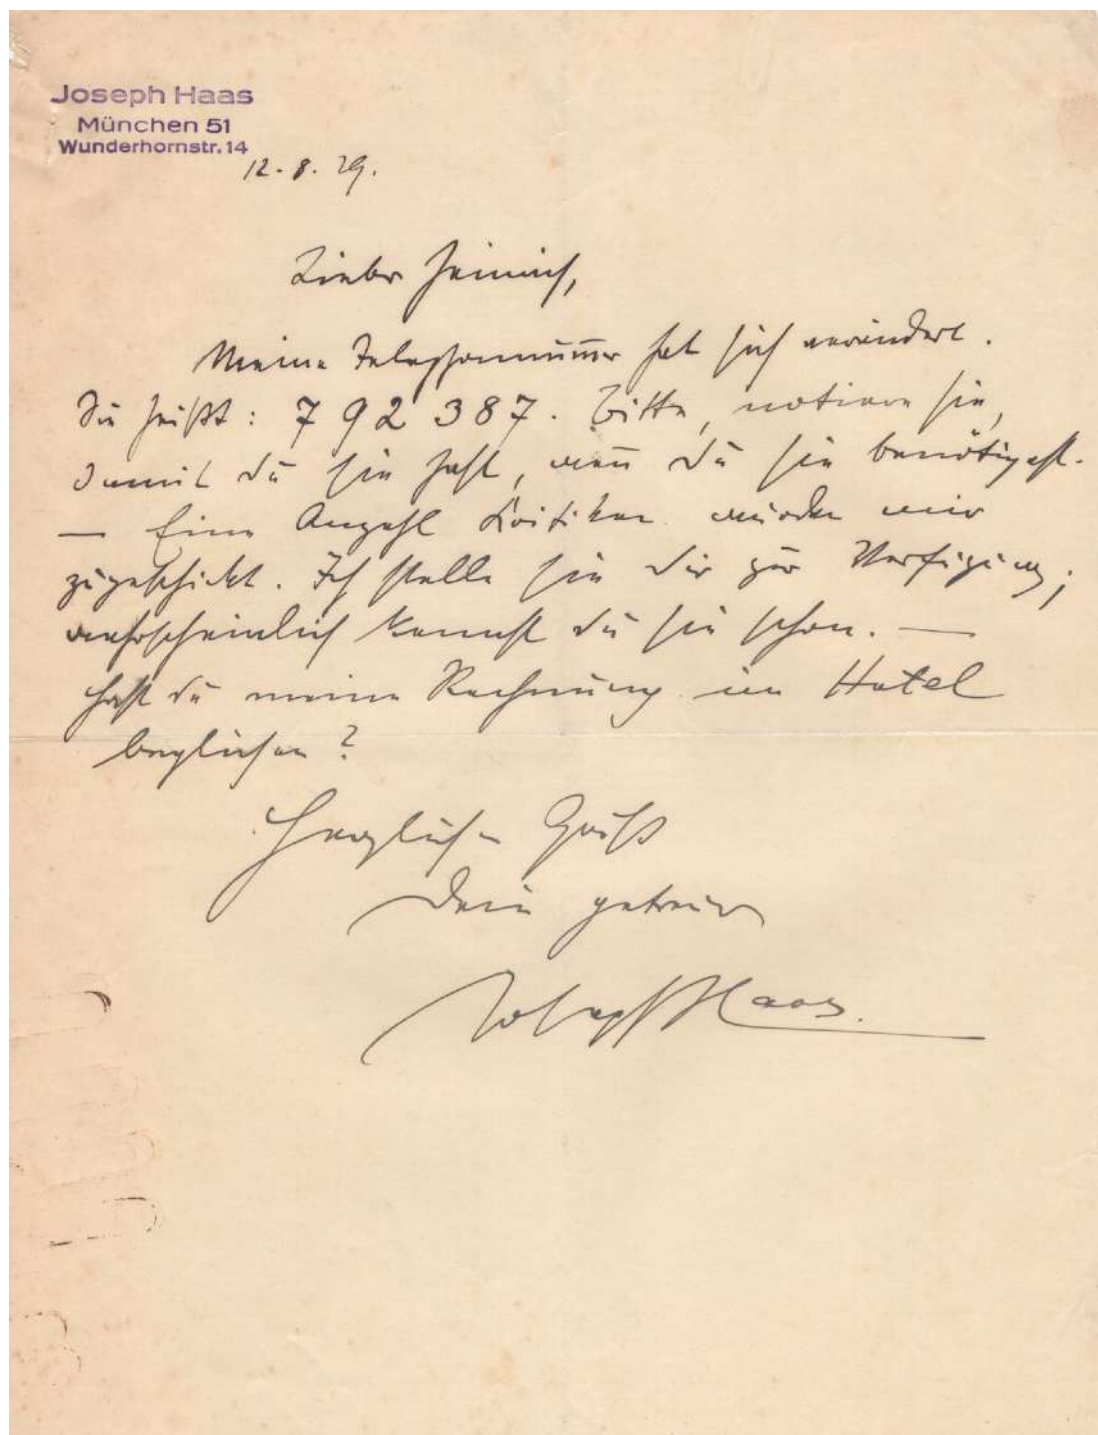 Joseph Haas
München 51
Wunderhornstr. 14
12. 8. 29.
Lieber Heinrich,
Meine Telephonnum̅er hat sich verändert.
Sie heißt: 792 387. Bitte, notiere sie,
damit du sie hast, wen̅ du sie benötigst.
— Eine Anzahl Kritiken wurden mir
zugeschickt. Ich stelle sie dir zur Verfügung;
wahrscheinlich kennst du sie schon. —
Hast du meine Rechnung im Hotel
beglichen?
Herzlichen Gruß
Dein getreuer
Joseph Haas.